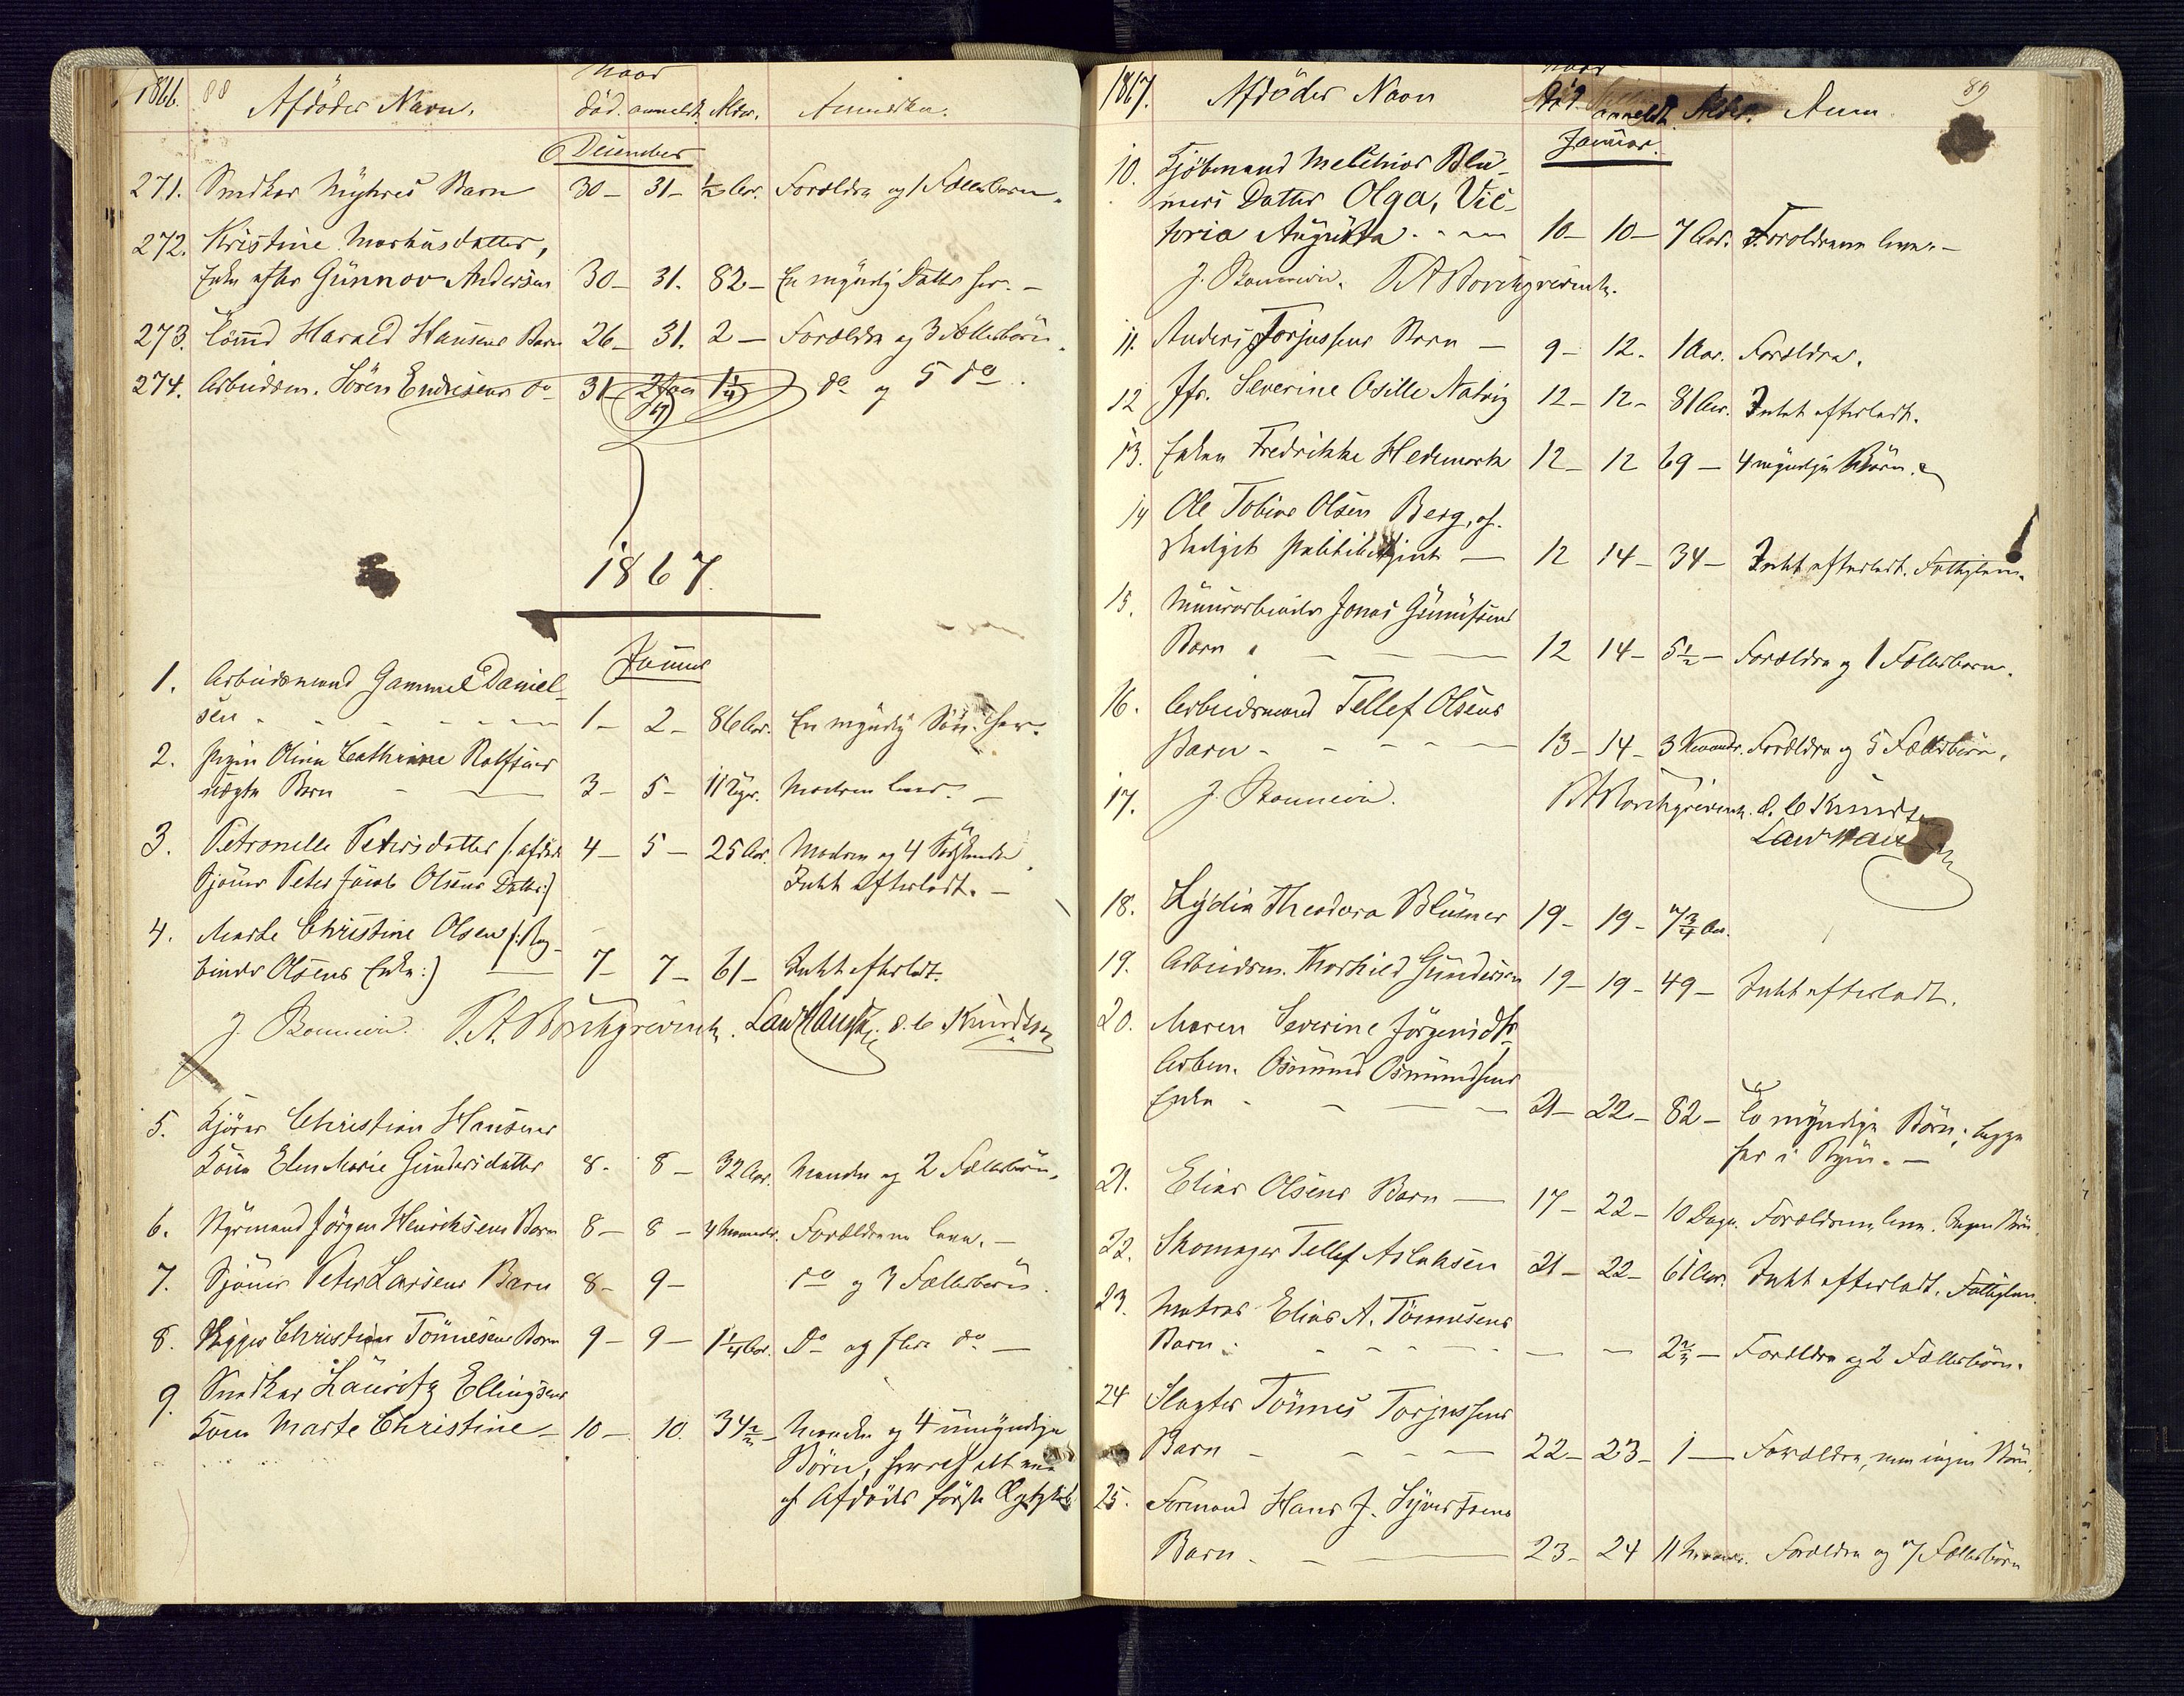 1866. 88 Afdødes Navn. Naar død. anmeldt. Alder. Anmerkn.
December
271. Snedker Myhres Barn 30- 31- ½ Aar. Forældre og 1 Fællesbarn.
272. Kristine Markusdatter,
Enke efter Gunnov Andersen 30- 31. 82- En myndig Datter her. -
273. Tømmd Harald Hansens Barn 26- 31. 2- Forældre og 3 Fællesbörn.
274. Arbeidsm. Sören Endresens do 31- 2 Jan 1¼ do og 5 do.
67
1867.
Januar
1. Arbeidsmand Gammel Daniel-
sen - - - - 1- 2- 86 Aar. En myndig Sön her.
2. Pigen Oline Cathrine Rolfsens
uægte Barn - 3- 5- 11 Uger. Moderen lever. -
3. Petronelle Petersdatter (: afdöde 4- 5- 25 Aar. Moderen og 4 Sødskende.
Sjömd Peter Jacob Olsens Datter:) Intet efterladt. -
4. Marte Christine Olsen (: Bog-
binder Olsens Enke:) 7- 7- 61- Intet efterladt.
J. T. A. Borchgrevink. Law Hansen. O. C. Knudsen
5. Kjörer Christian Hansens
Kone Elen Marie Gundersdatter 8- 8- 32 Aar. Manden og 2 Fællesbörn.
6. Styrmand Jörgen Henriksens Barn 8- 8- 4 Maaneder. Forældrene leve. -
7. Sjömd Peter Larsens Barn 8- 9- do og 3 Fællesbörn.
8. Skipper Christian Tönnesens Barn 9- 9- 1¼ Aar. Do og flere do -
9. Snedker Lauritz Ellingsens
Kone Marte Christine - 10- 10. 34½- Manden og 4 umyndige
Börn, hvoraf et en
af Afdödes förste Ægteskab.
1867. Afdödes Navn Naar död. anmeldt. Alder. Anm. 89
Januar.
10. Kjöbmand Melchior Blu-
mers Datter Olga, Vic-
toria Augusta - - - 10- 10- 7 Aar. Forældrene leve. -
J. T A Borchgrevink.
11. Anders Torjussens Barn - 9- 12. 1 Aar. Forældre.
12 Jfr. Severine Osille Natvig 12- 12- 81 Aar. Intet efterladt.
13. Enken Fredrikke Hedemark 12- 12 69- 4 myndige Börn.
14 Ole Tobias Olsen Berg, af-
skediget Politibetjent - 12 14- 34- Intet efterladt. Fattiglem.
15. Muurarbeider Jonas Gunnufsens
Barn - - - 12 14- 5½- Forældre og 1 Fællesbarn.
16. Arbeidsmand Tellef Olsens
Barn - - - - 13- 14- 3 Maaneder. Forældre og 5 Fællesbörn.
17. J. T A Borchgrevink. O. C Knudsen
Law Hansen
18. Lydia Theodora Blumer 19- 19- 7¾ Aar.
19. Arbeidsm. Thorkild Gundersen 19- 19- 49- Intet efterladt.
20. Maren Severine Jörgensdtr.
Arbm. Osmund Osmundsens
Enke - - - - 21- 22- 82- To myndige Börn; begge
her i Byen. -
21. Elias Olsens Barn - 17- 22- 10 Dage. Forældrene leve. Ingen Börn.
22. Skomager Tellef Aslaksen 21- 22- 61 Aar. Intet efterladt. Fattiglem.
23. Matros Elias A. Tönnesens
Barn - - - - - - 2½- Forældre og 2 Fællesbörn.
24 Slagter Tönnes Torjussens
Barn - - - - 22- 23- 1- Forældre, men ingen Börn.
25. Formand Hans J. Syvertsens
Barn - - - 23- 24 11 Maaneder. Forældre og 7 Fællesbörn